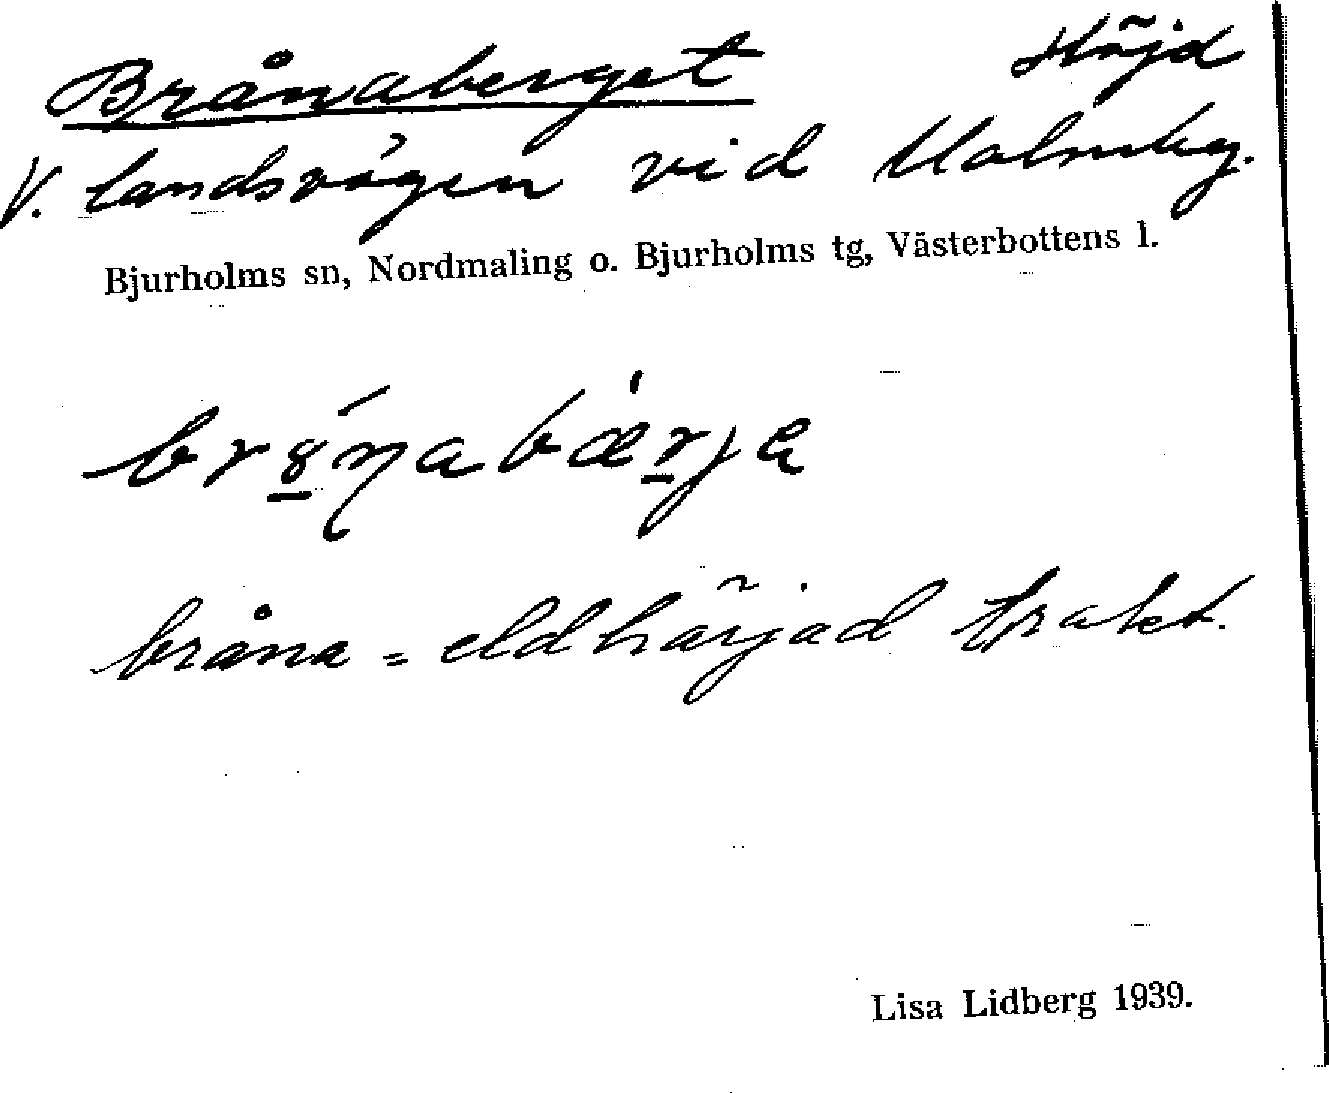 Brånaberget Höjd
V. landsvägen vid
Bjurholms sn, Nordmaling o. Bjurholms tg, Västerbottens l.
bråna = eldhärjad trakt.
Lisa Lidberg 1939.